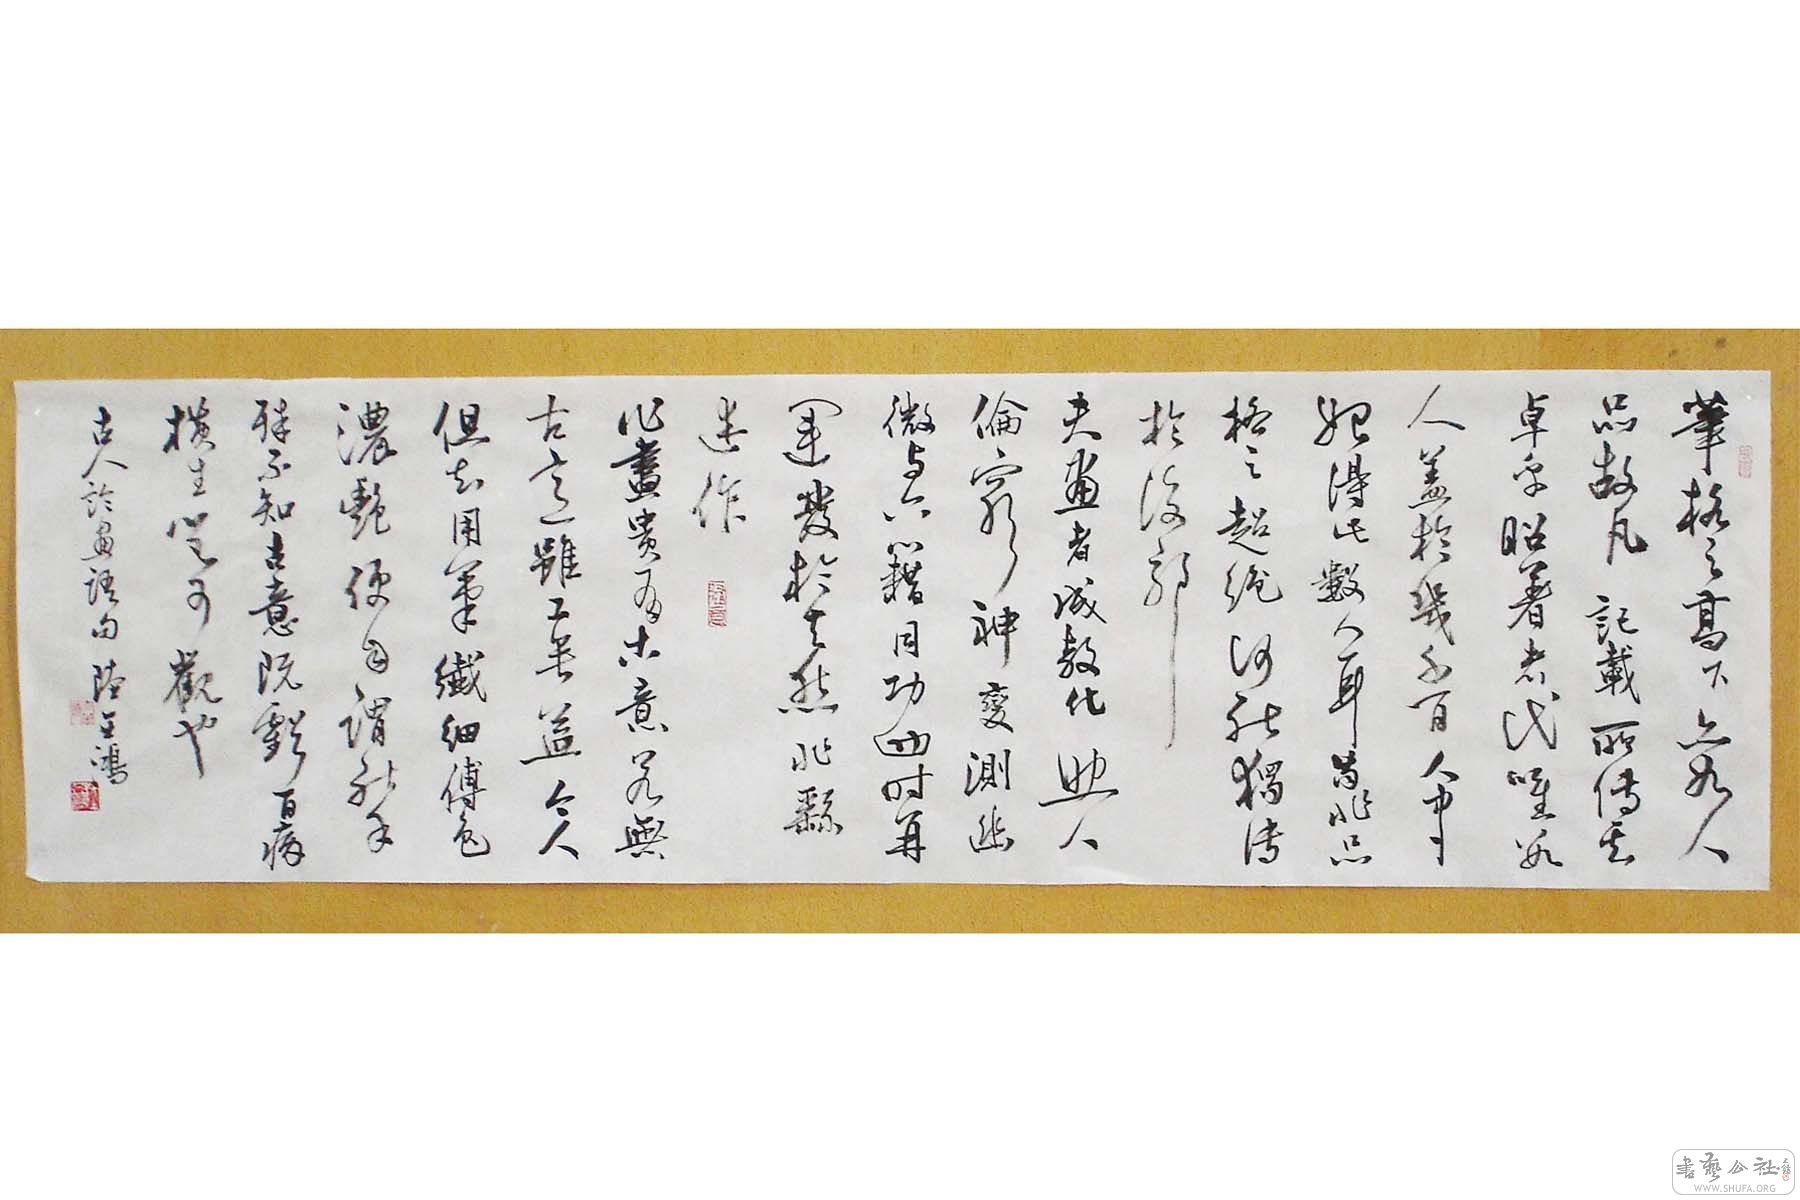 筆格之高下亦如人
品故凡記載所傳其
卓卓昭著者代唯數
人蓋於幾千百人中
始得此數人耳苟非品
格之超絶何能獨傳
於後耶
夫畫者成教化助人
倫窮神變測幽
微与六籍同功四时并
運發於天然非繇
述作
作畫貴有古意若無
古意雖工無益今人
但知用筆纖細傅色
濃艷便自謂能手
殊不知古意既虧百病
橫生豈可觀也
古人論畫語句 陸
鴻
書藝公社
WWW.SHUFA.ORG